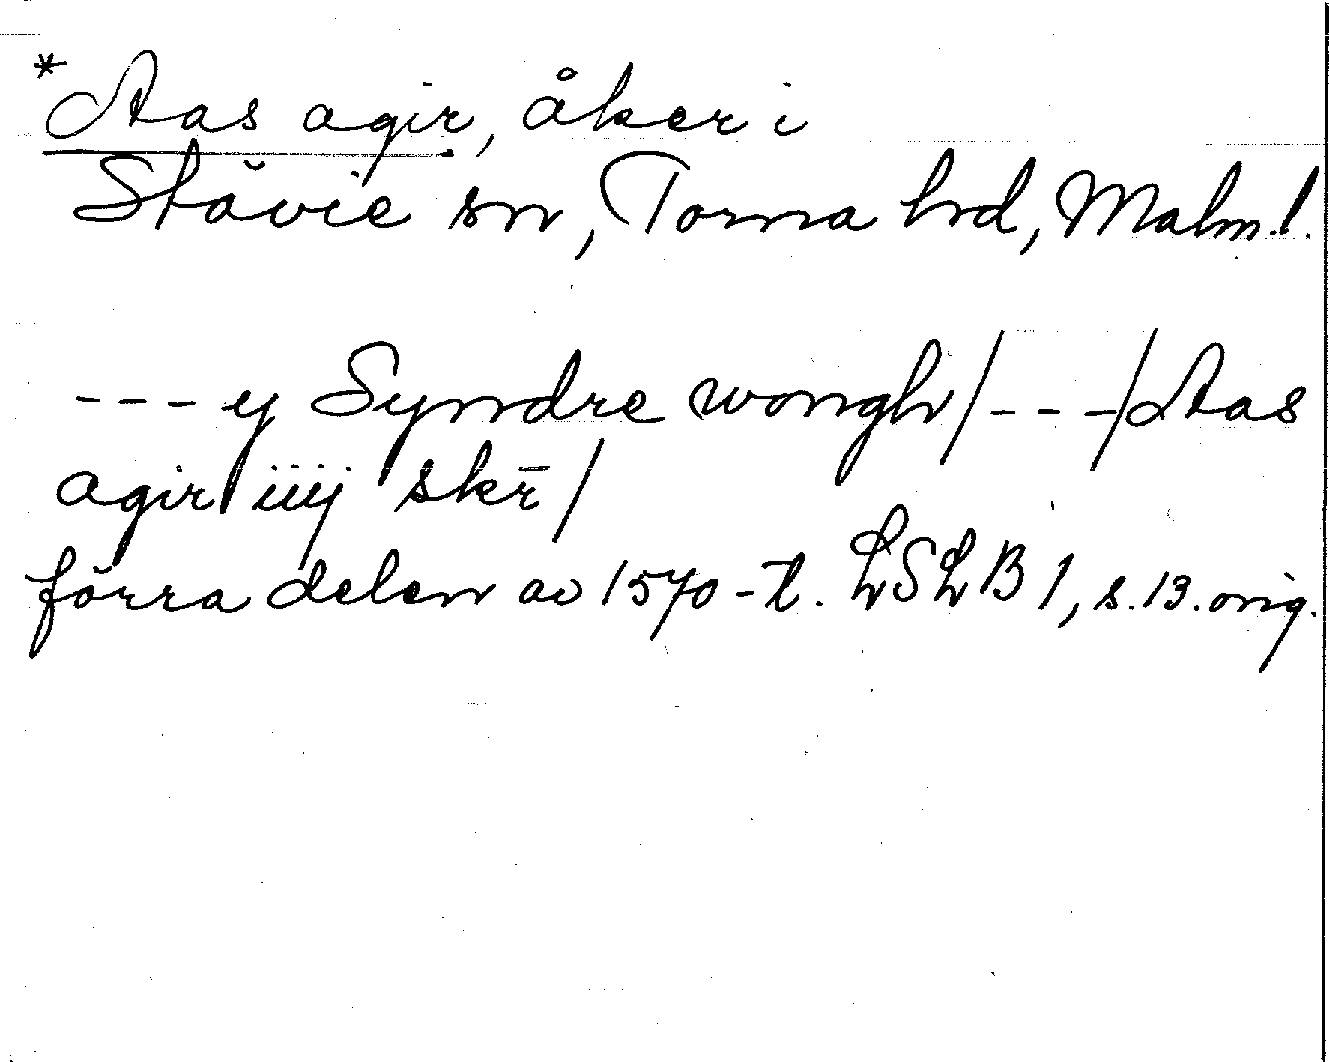 *Aas agir, åker i
Stävie sn, Torna hrd, Malm.l.
--- y Syndre wongh/---/Aas
agir iiij skr̄/
förra delen av 1570-t. LSLB 1, s.13. orig.